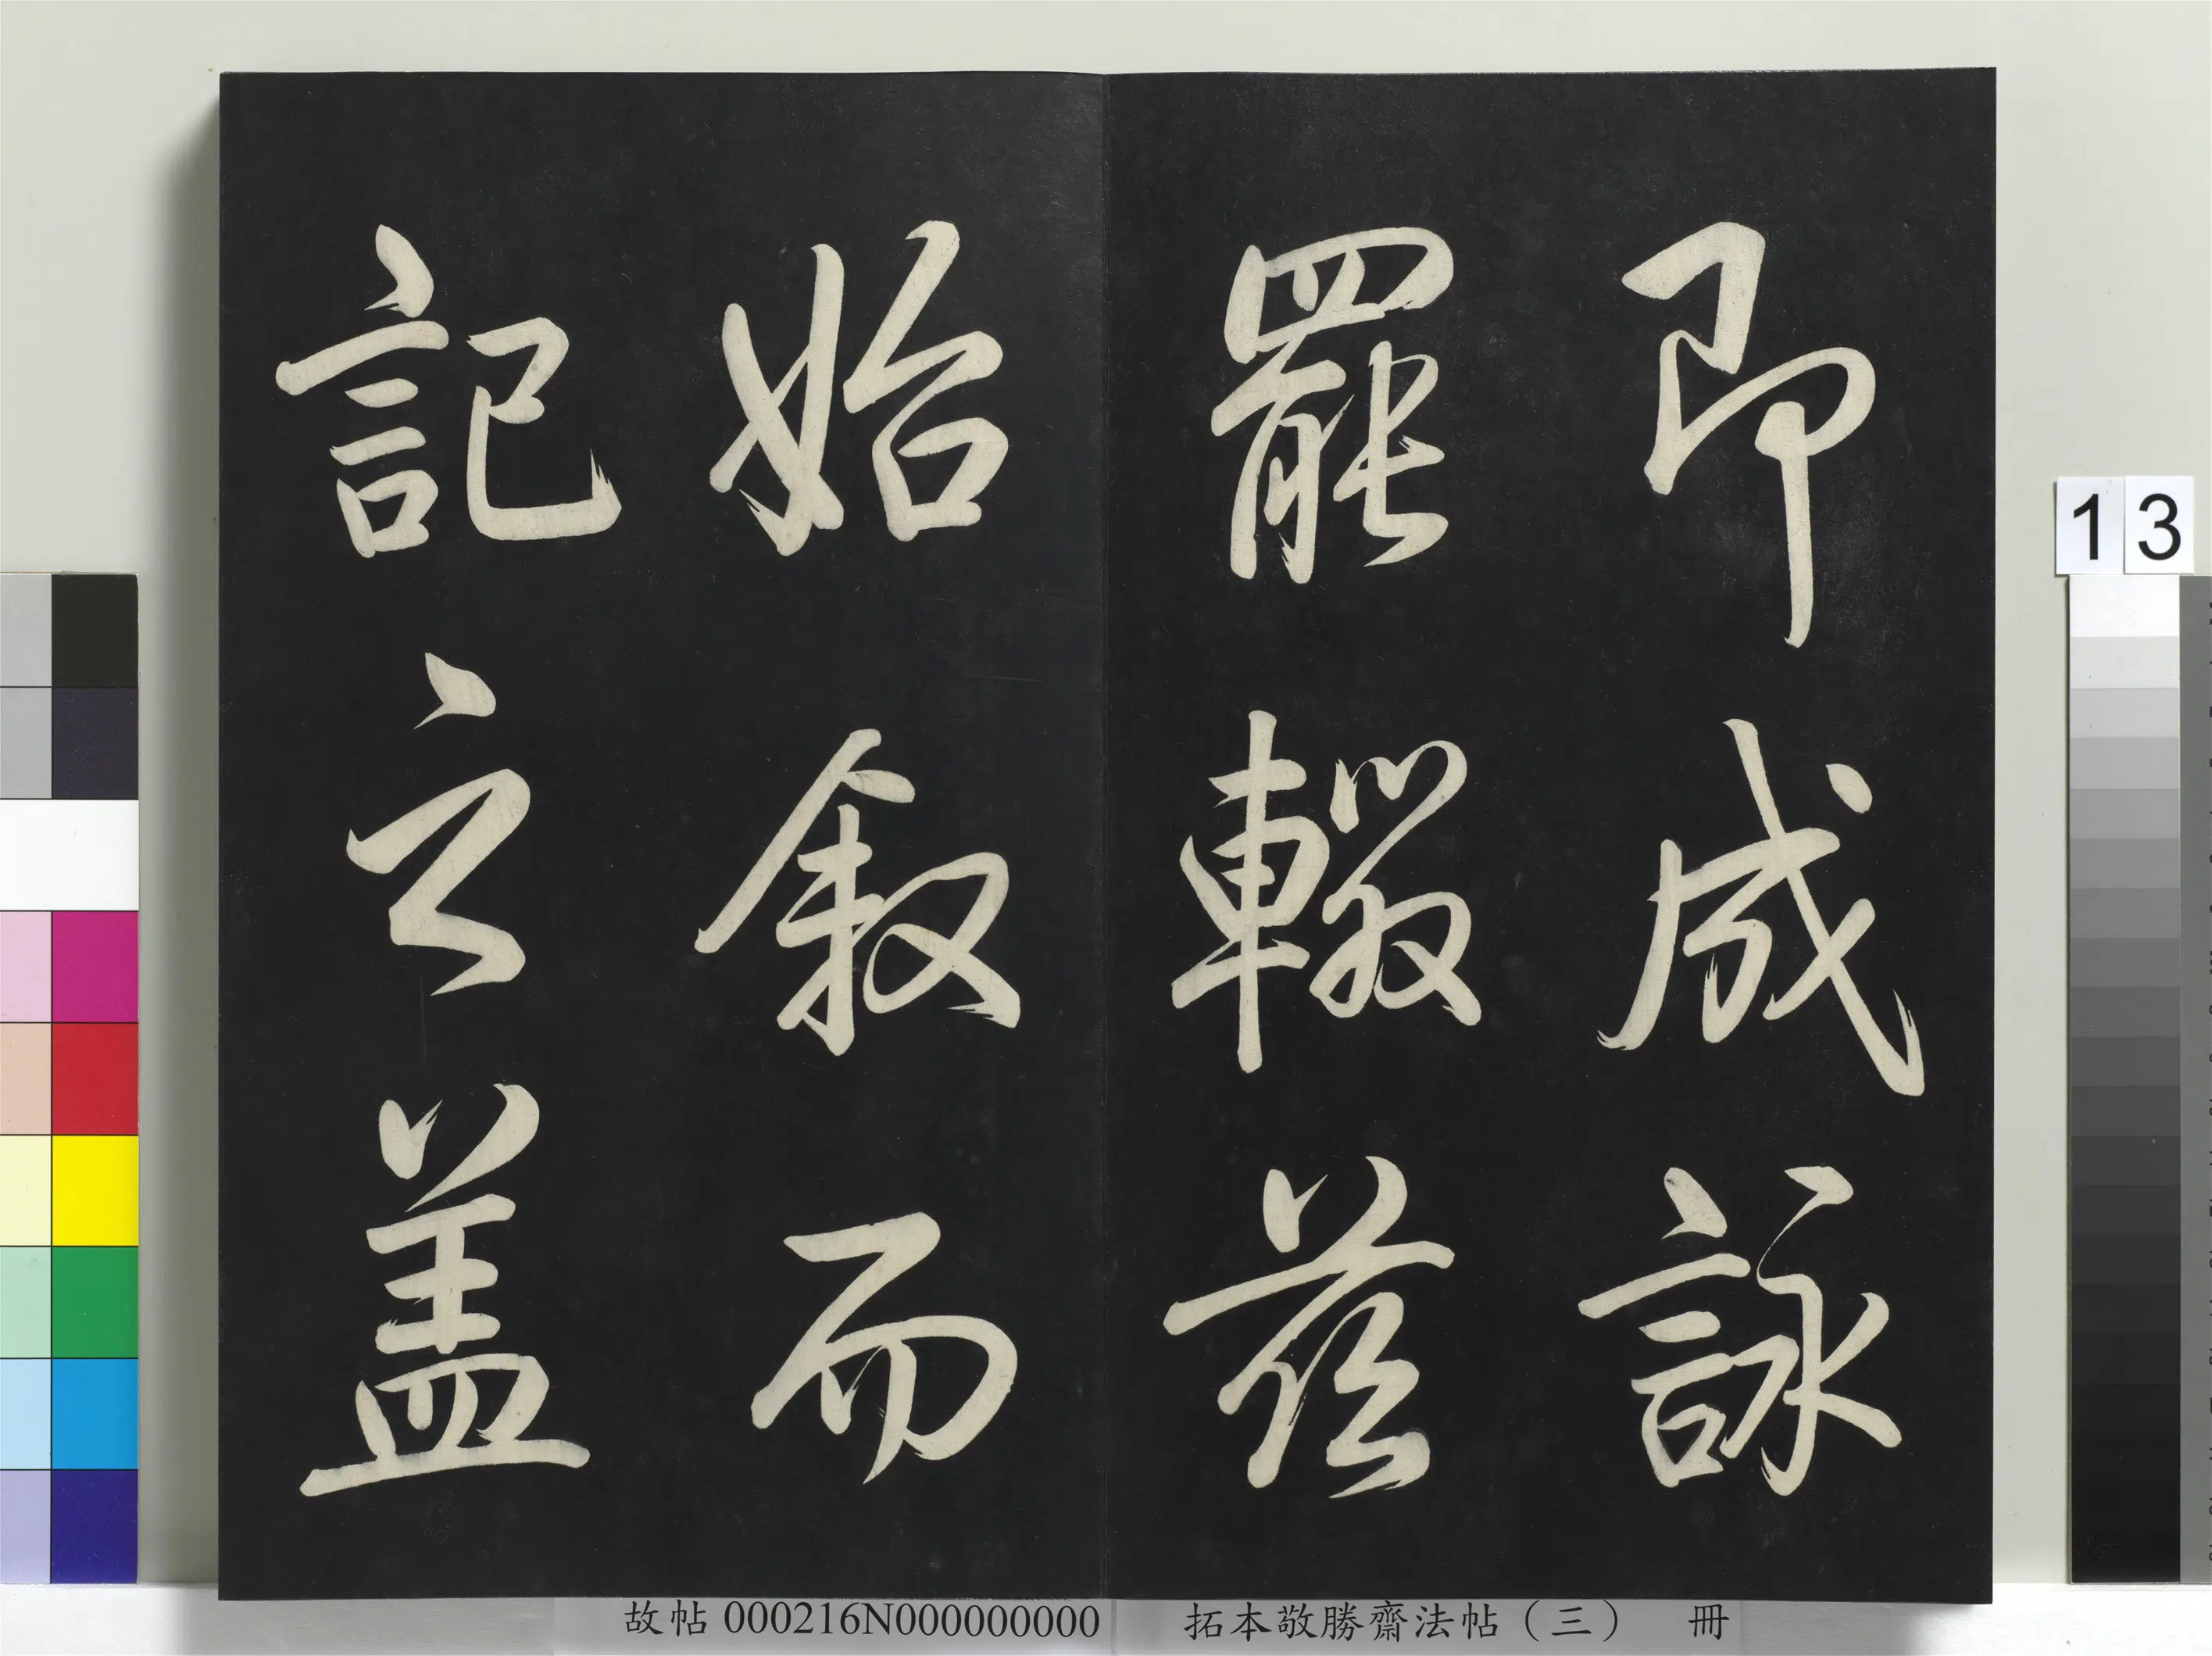 即成詠
罷輟茲
始叙而
記之盖
13
故帖000216N000000000 拓本敬勝齋法帖（三） 冊